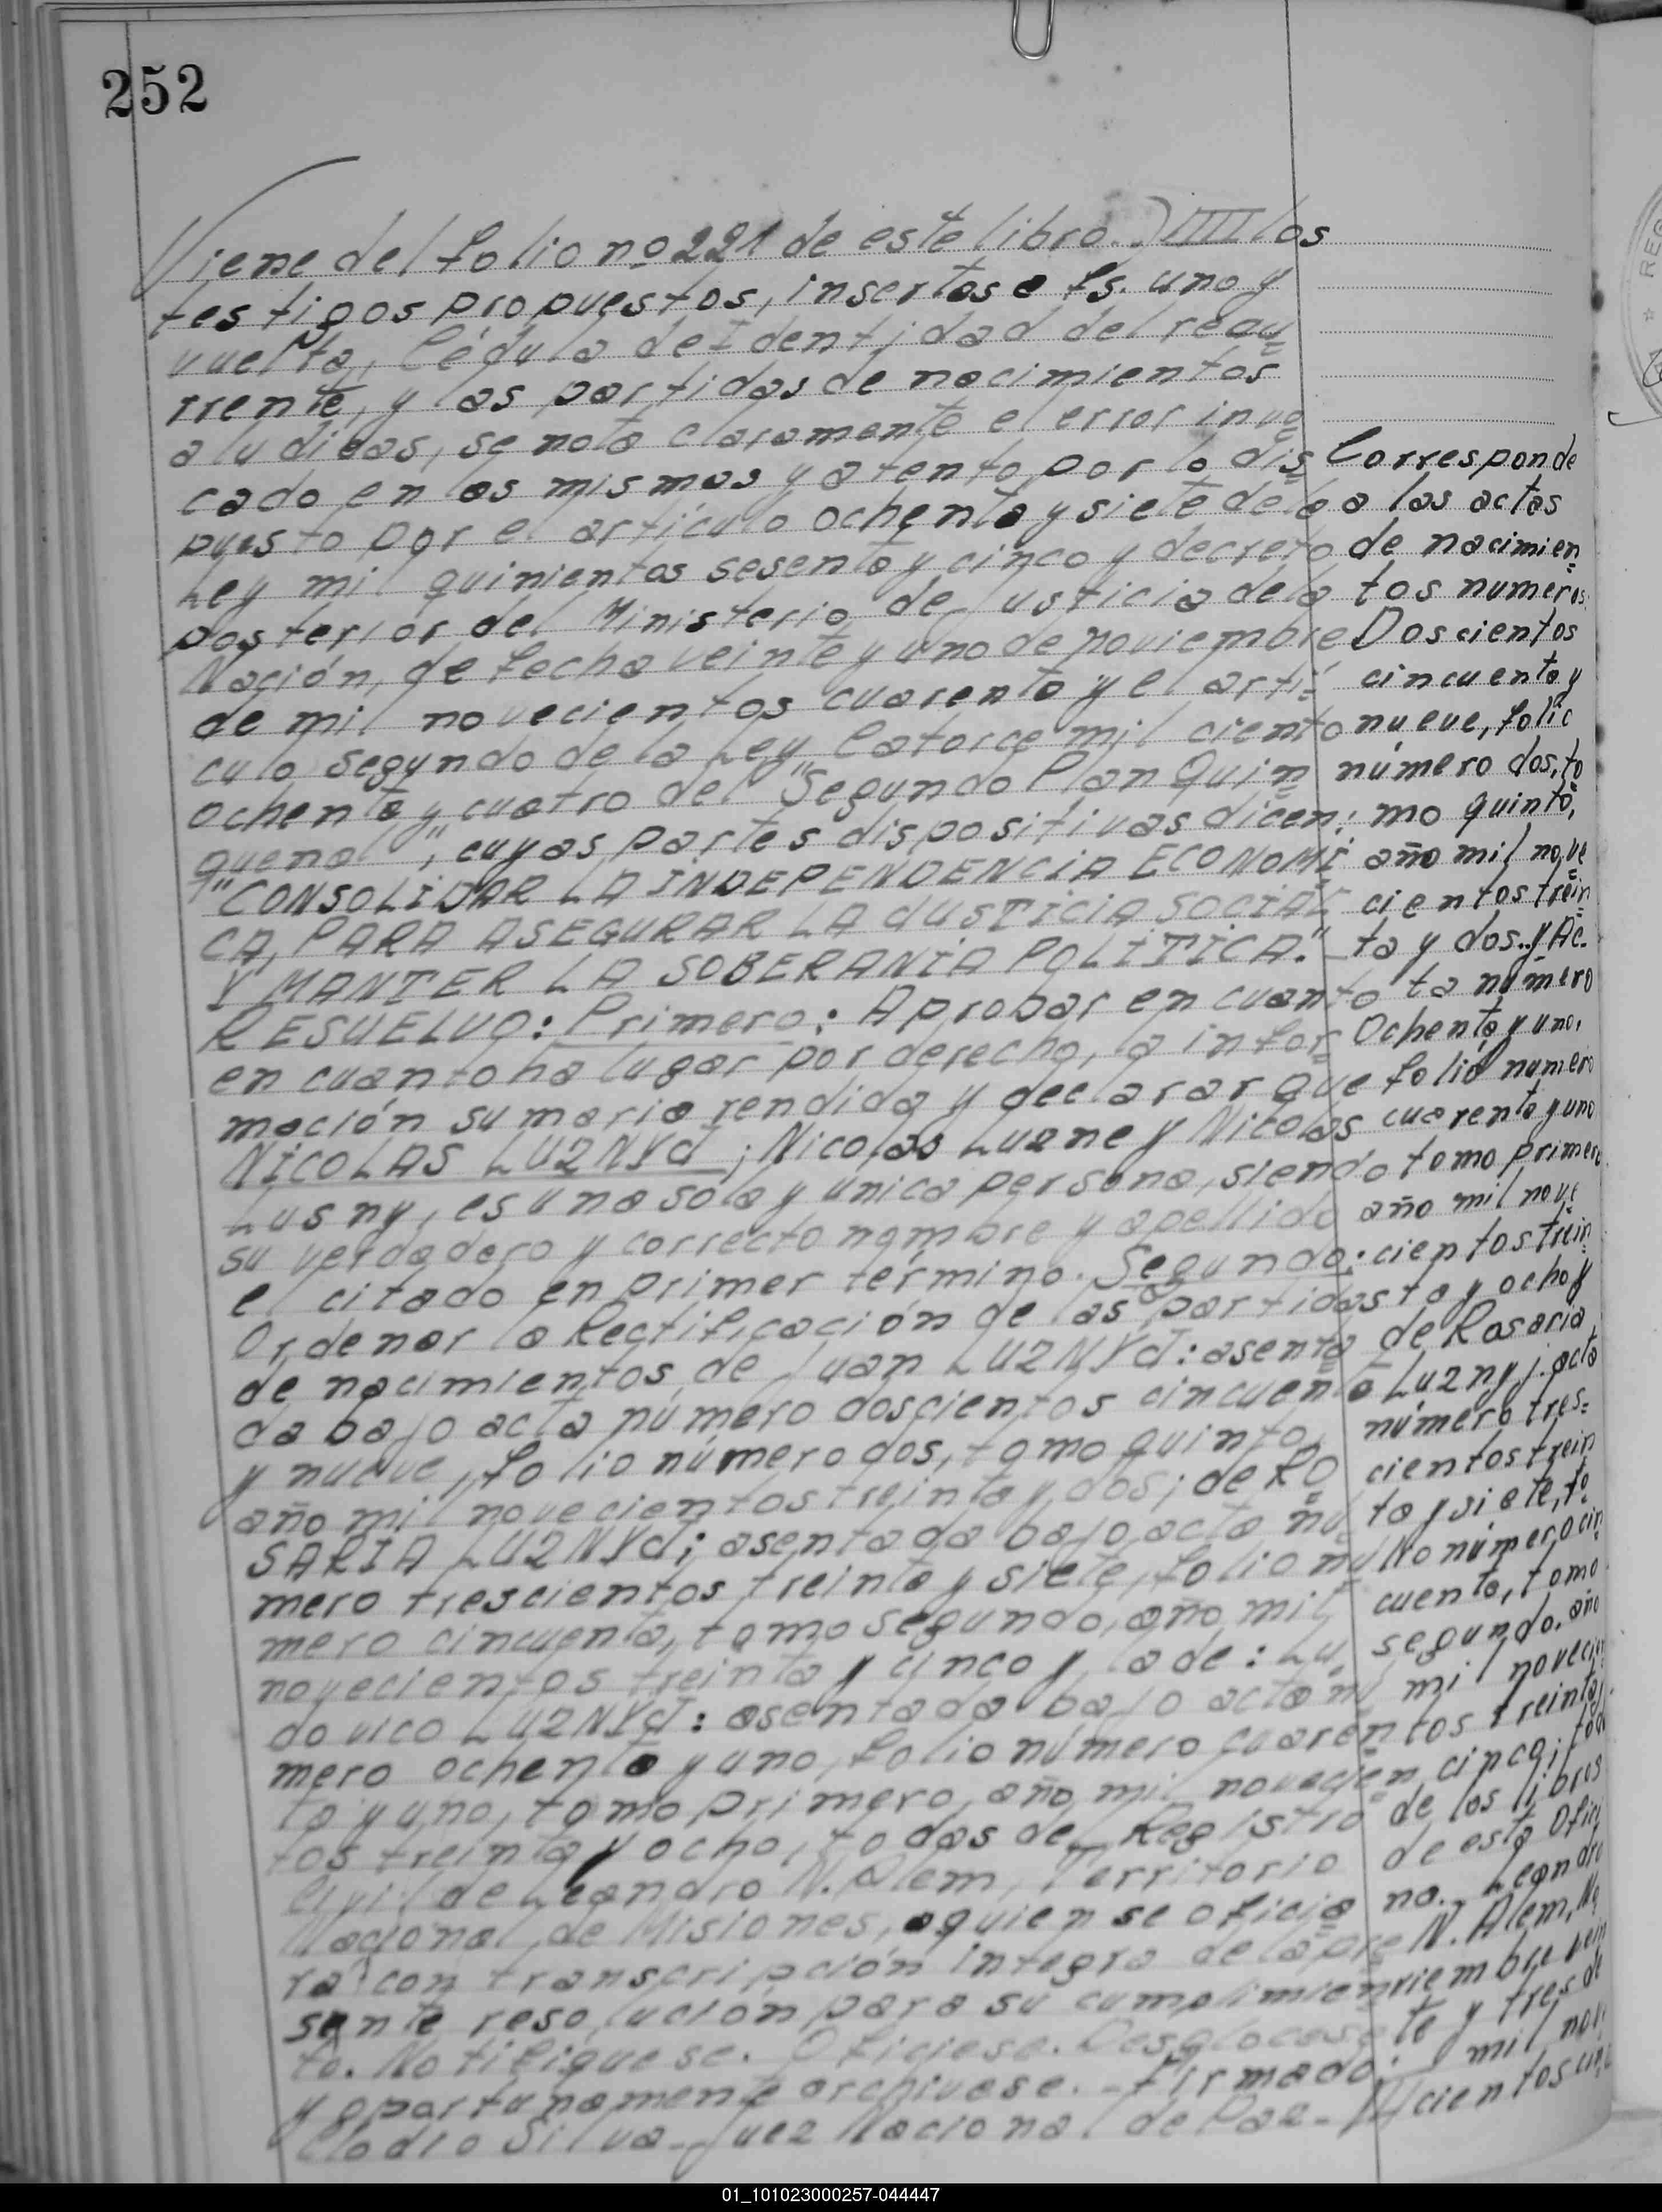 252
Viene del folio nº 221 de este libro.) IIII los
testigos propuestos, insertos a fs. uno y
vuelta, Cédula de Identidad del recu=
rrente, y las partidas de nacimientos
aludidas, se nota claramente el error invo=
cado en las mismas y atento por lo dis=
puesto por el artículo ochenta y siete de la
Ley mil quinientos sesenta y cinco y decreto
posterior del Ministerio de Justicia de la
Nación, de fecha veinte y uno de noviembre
de mil novecientos cuarenta y el artí=
culo segundo de la Ley Catorce mil ciento
ochenta y cuatro del "Segundo Plan Quin=
quenal", cuyas partes dispositivas dicen:
"CONSOLIDAR LA INDEPENDENCIA ECONOMI=
CA, PARA ASEGURAR LA JUSTICIA SOCIAL
Y MANTER LA SOBERANIA POLITICA."-
RESUELVO: Primero: Aprobar en cuanto
en cuanto ha lugar por derecho, la infor=
mación sumaria rendida y declarar que
NICOLAS LUZNYJ; Nicolas Luzne y Nicolas
Lusny, es una sola y unica persona, siendo
su verdadero y correcto nombre y apellido
el citado en primer término. Segundo:
Ordenar la Rectificación de las partidas
de nacimientos de Juan LUZNYJ: asenta=
da bajo acta número doscientos cincuenta
y nueve, folio número dos, tomo quinto,
año mil novecientos treinta y dos; de RO=
SARIA LUZNYJ; asentada bajo acta nú=
mero trescientos treinta y siete, folio nú=
mero cincuenta, tomo segundo, año mil
novecientos treinta y cinco y la de: Lu=
dovico LUZNYJ: asentada bajo acta nú=
mero ochenta y uno, folio número cuaren=
ta y uno, tomo primero, año mil novecien=
tos treinta y ocho, todas del Registro
Civil de Leandro N. Alem, Territorio
Nacional de Misiones, a quien se oficia=
rá con transcripción integra de la pre=
sente resolución para su cumplimien=
to. Notifiquese. Oficiese. Desglocese
y oportunamente archivese.- Firmado:
Clodio Silva- Juez Nacional de Paz-
Corresponde
a las actas
de nacimien=
tos numeros
Doscientos
cincuenta y
nueve, folio
número dos, to=
mo quinto,
año mil nove=
cientos trein=
ta y dos.. y Ac-
ta número
Ochenta y uno,
folio numero
cuarenta y uno
tomo primero
año mil nove=
cientos trein=
ta y ocho y
de Rosaria
Luznyj. acta
número tres=
cientos trein
ta y siete, fo=
lio número cin
cuenta, tomo
segundo. año
mil novecien
tos treinta y
cinco; todo
de los libros
de esta Ofici
na. Leandro
N. Alem, No
viembre vein
te y tres de
mil nove
cientos cin